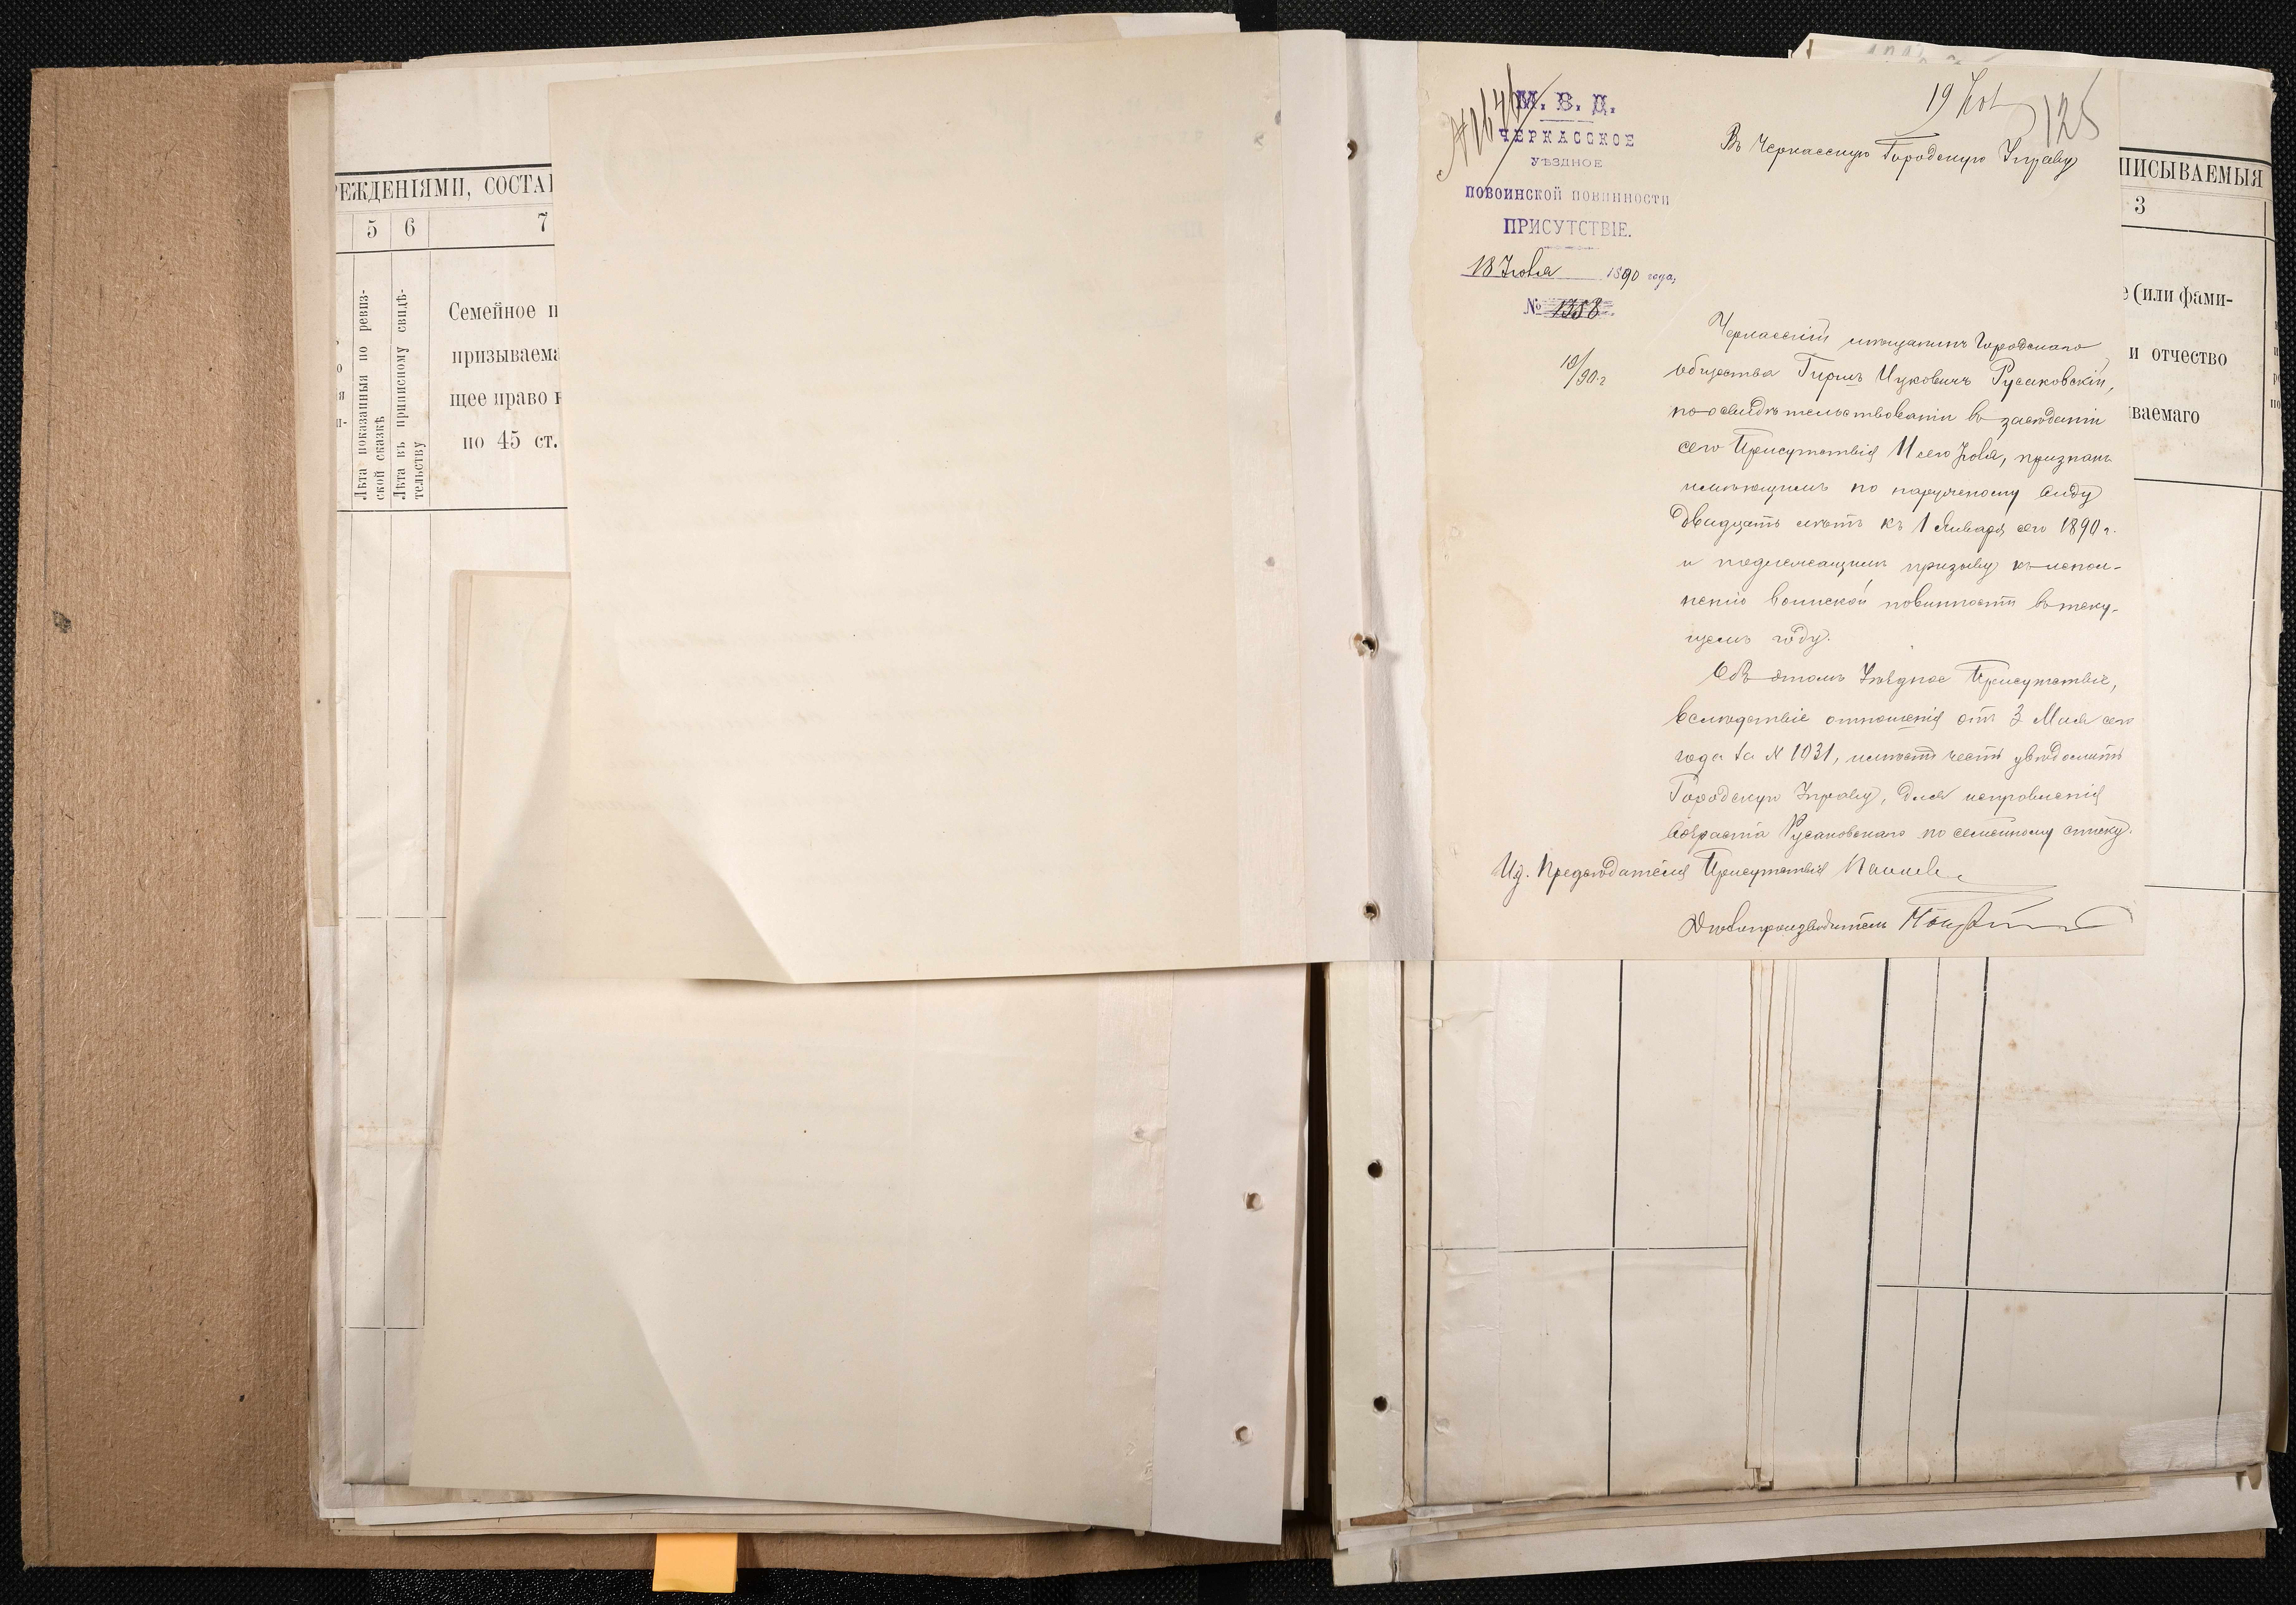 РЕЖДЕНІЯМИ, СОСТАІ
5 6 7
Лѣта показанныя по ревиз-
ской сказкѣ
Лѣта въ приписному свидѣ-
тельству
Семейное п
призываема
щее право н
по 45 ст.
19 Іюл
125
М. В. Д.
ЧЕРКАССКОЕ
УѢЗДНОЕ
ПОВОИНСКОЙ ПОВИННОСТИ
ПРИСУТСТВІЕ.
18 Іюля 1890 года,
№ 1358
19/90 г
Въ Черкасскую Городскую Управу
Черкасскій мѣщанинъ Городскаго
общества Гиршъ Ицковичъ Русаковскій,
по освидѣтельствованіи въ засѣданіи
сего Присутствія 11 сего Іюля, признанъ
имѣющимъ по наружному виду
двадцать лѣтъ къ 1 Января сего 1890 г.
и подлежащимъ призыву къ испол-
ненію воинской повинности въ теку-
щемъ году.
Объ этомъ Уѣздное Присутствіе,
вслѣдствіе отношенія отъ 3 Мая сего
года за № 1031, имѣетъ честь увѣдомить
Городскую Управу, для исправленія
возраста Русаковскаго по семейному списку.
Ид. Предсѣдателя Присутствія
Дѣлопроизводитель
ПИСЫВАЕМЫЯ
3
е (или фами-
и отчество
ваемаго